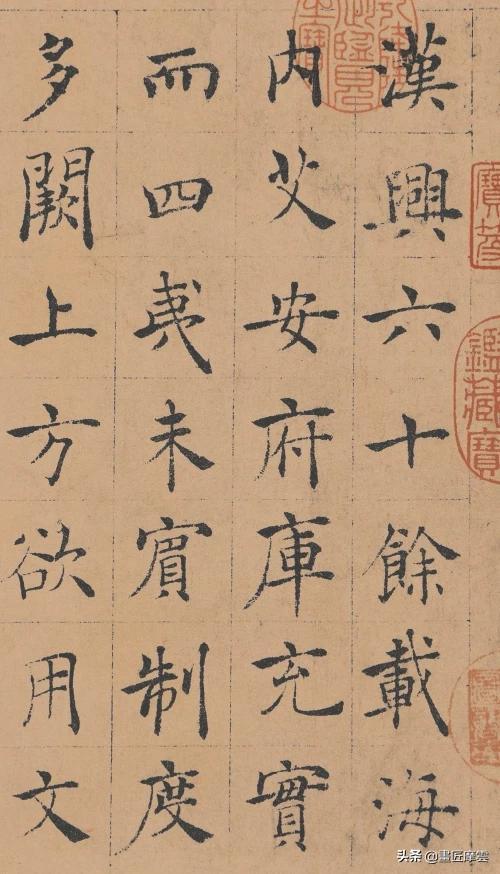 漢興六十餘載海
内艾安府庫充實
而四夷未賓制度
多闕上方欲用文
鑑藏寶
头条 @畫匠摩雲